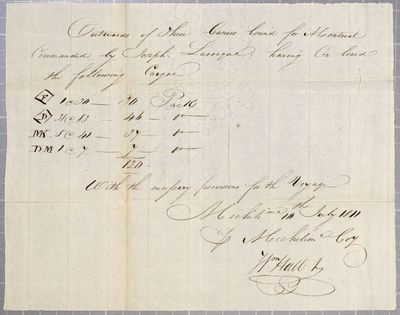 Outwards of Three Canoes bound for Montreal
Commanded by Joseph Laroque having On board
the following Cargoe
F 1 @ 30 — 30 Packs
D 31 @ — 46 — "
MK 5 @ 41 — 37 — "
DM 1 @ 7 — 7 — "
120
With the necessary provisions for the Voyage
Michilin 10th July 1811
Michilim Coy
Wm Hall